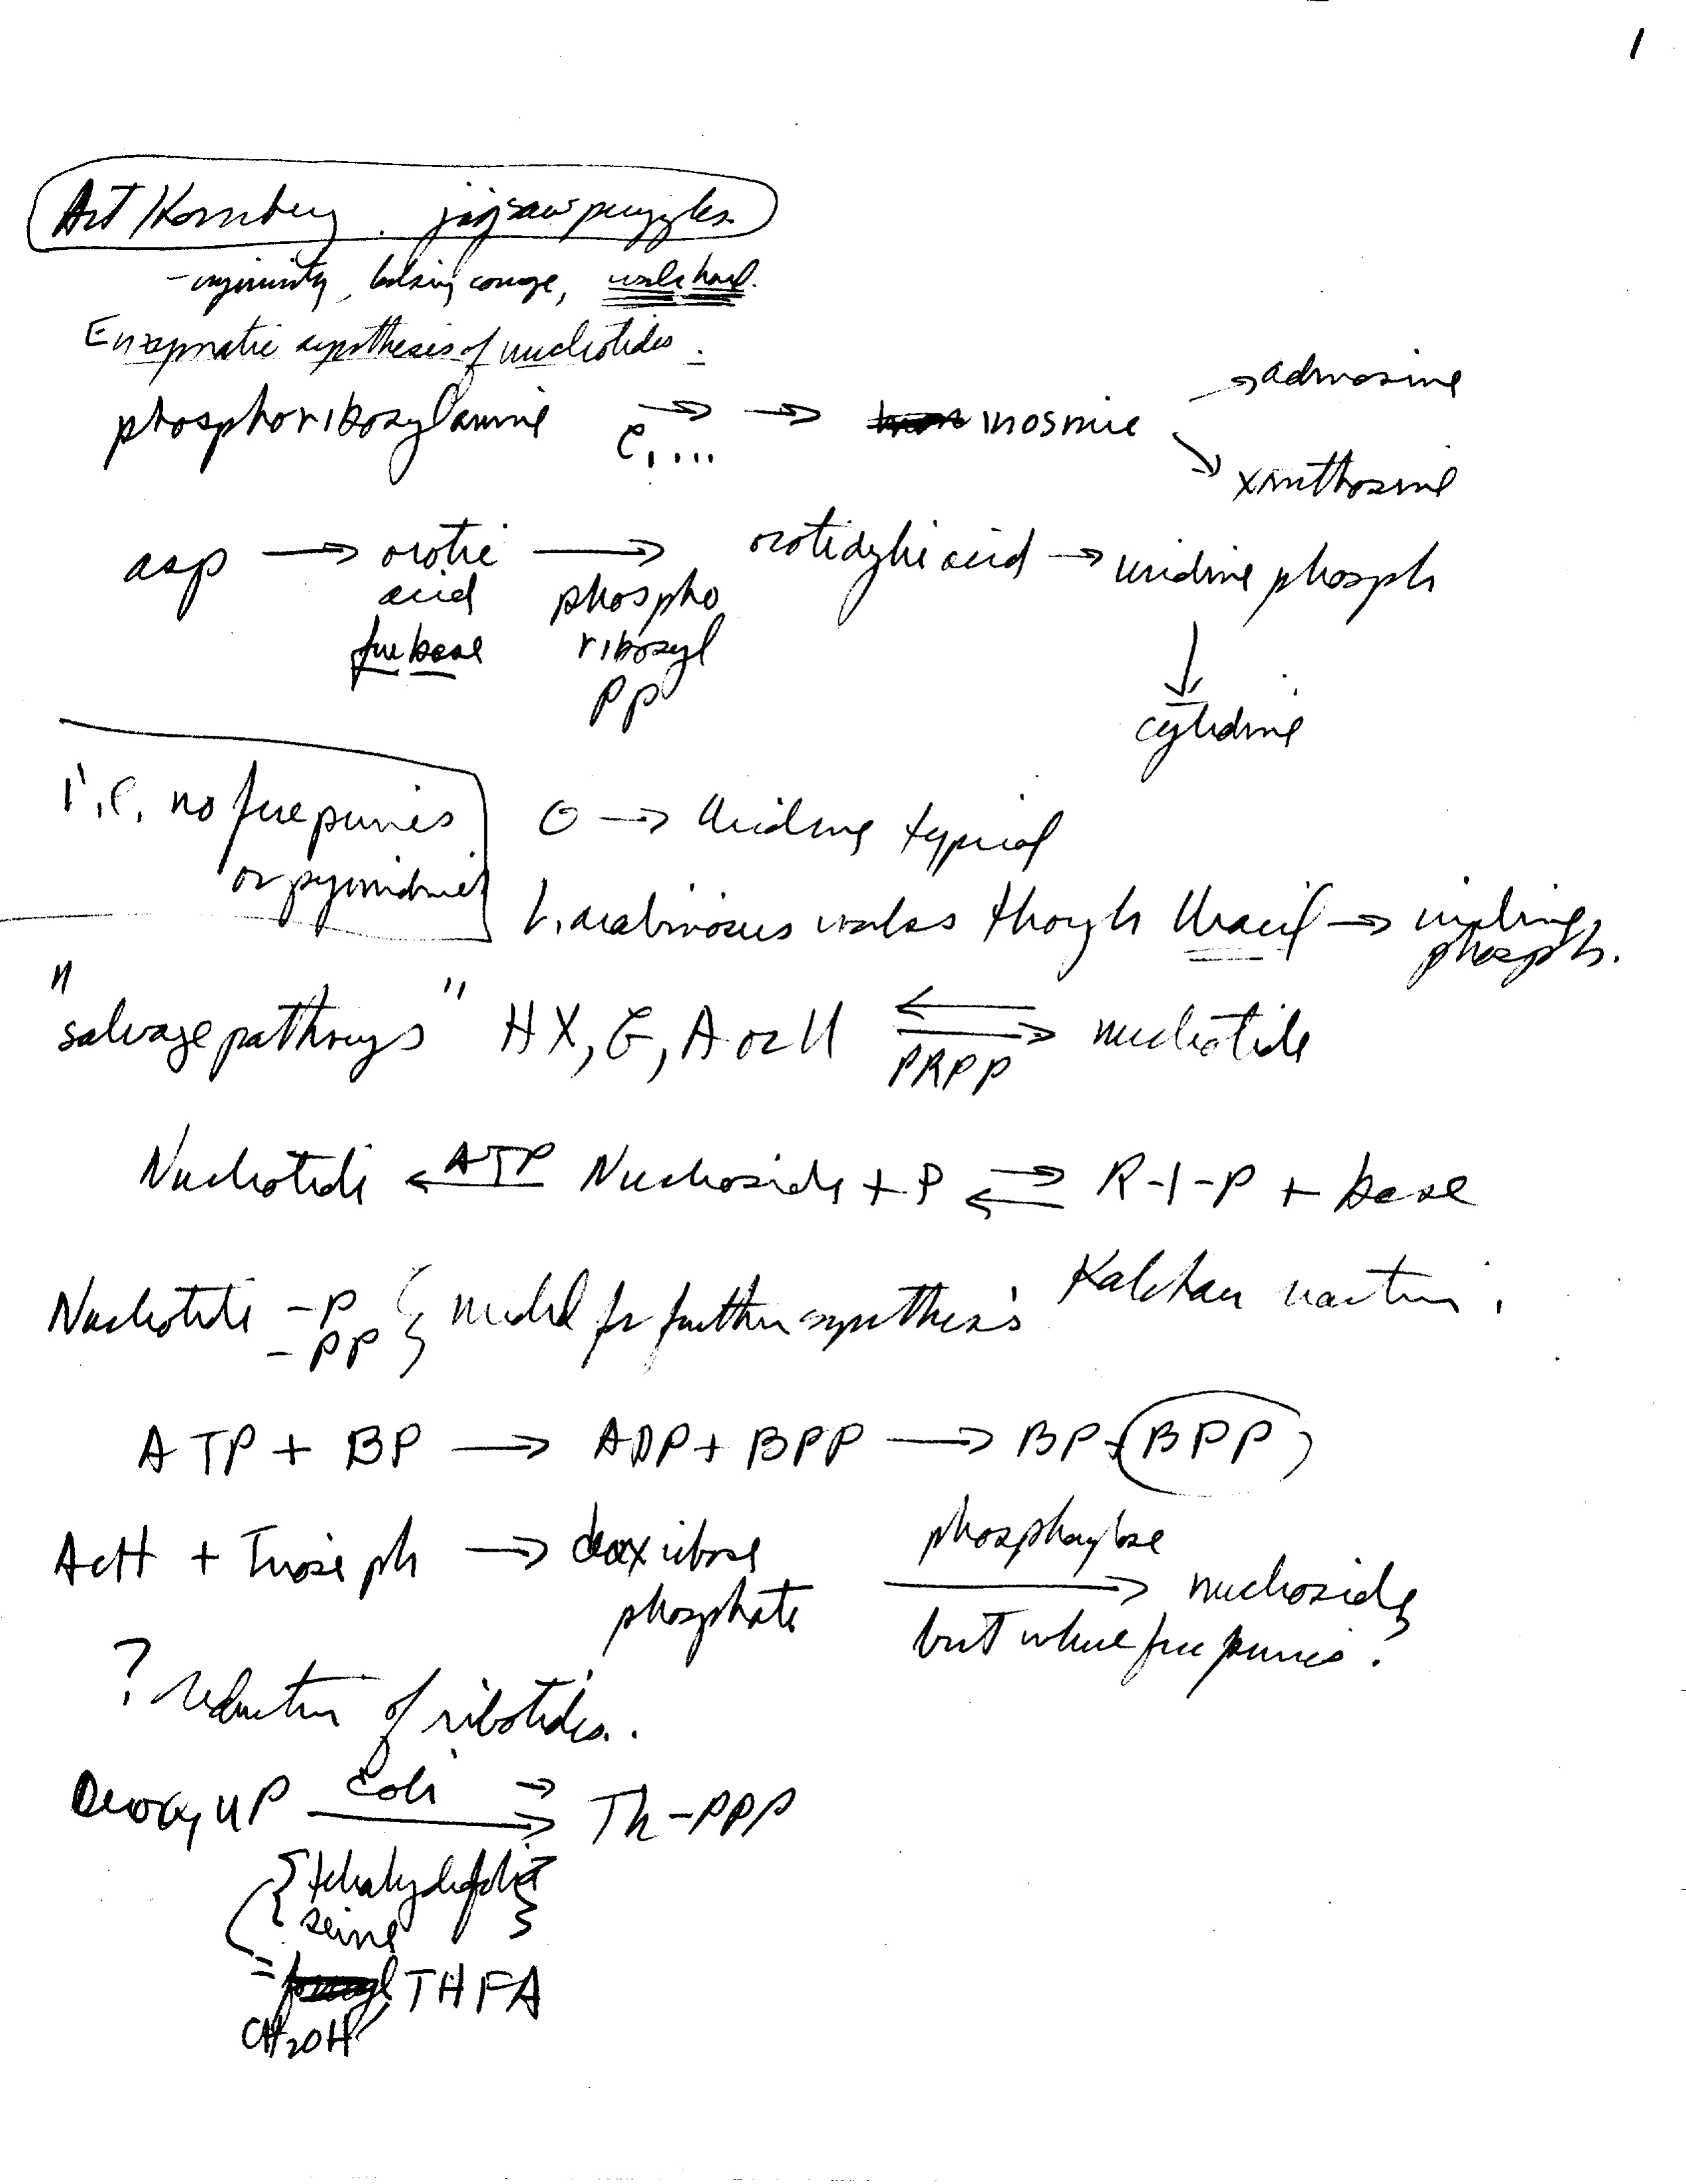 1
Art Kornberg. jigsaw puzzles.
- ingenuity, courage, work hard.
Enzymatic synthesis of nucleotides.
phosphoribosylamine →→ → inosine → adenosine
e, .... ↘ xanthosine
asp → orotic acid free base → phospho ribosyl PP orotidylic acid → uridine phosph
↓
cytidine
i.e. no free purines
or pyrimidines
O → Uridine typical
L. arabinosus works through Uracil → uridine phosph.
"salvage pathways" HX, G, A or U ⇄ nucleotide
PRPP
Nucleotide ← ATP Nucleoside + P ⇄ R-1-P + base
Kalckar reaction.
Nucleotide -P
-PP } needed for further synthesis
ATP + BP → ADP + BPP → BP + BPP
AcH + Triose ph → deoxribose phosphate
phosphorylase → nucleoside
but where free purines?
? reduction of ribotides..
Deoxy UP coli → → Th-PPP
{ tetrahydrofolic
serine }
= THFA
CH2OH